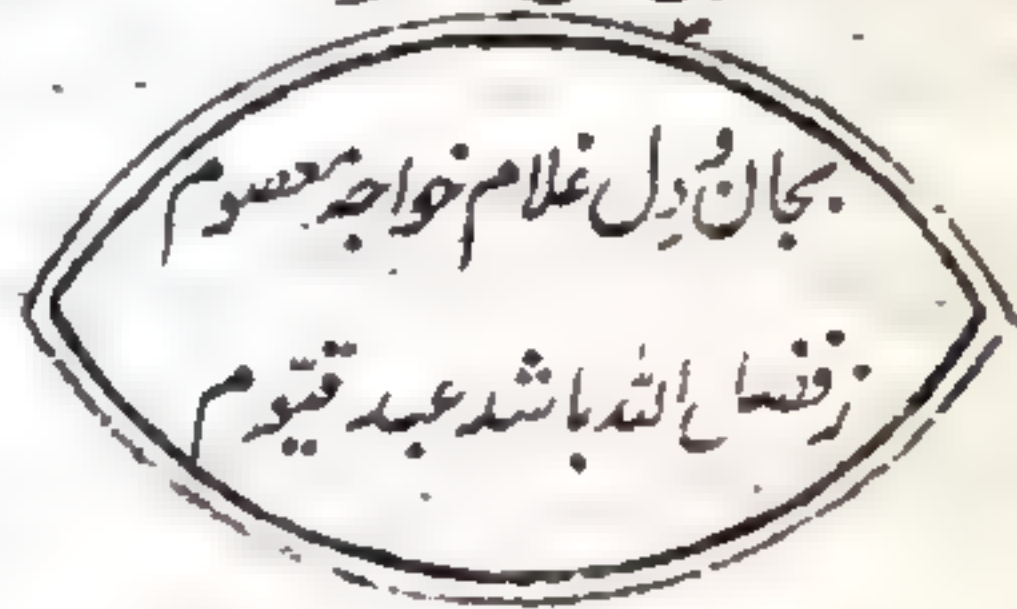 بجان وُ دِل غلام خواجہ معصوم
ز فضل اللہ باشد عبد قیّوم